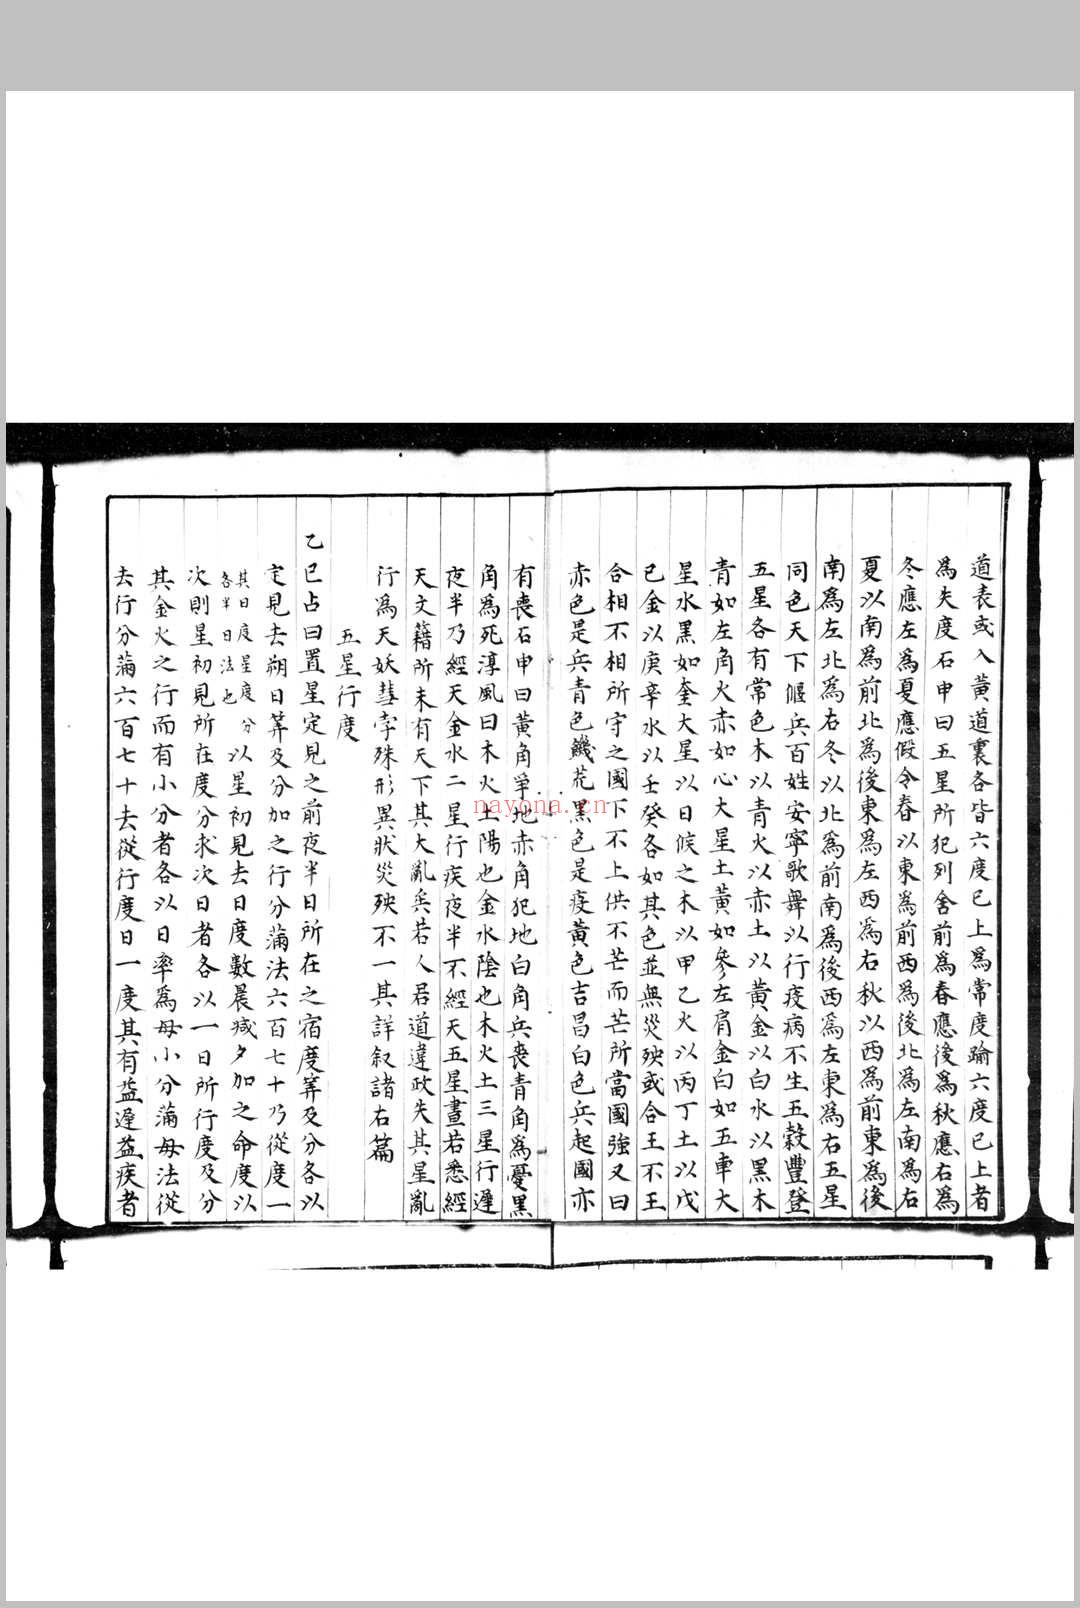 道表或入黄道裏各皆六度已上爲常度踰六度已上者
爲失度石申曰五星所犯列舍前爲春應後爲秋應右爲
冬應左爲夏應假令春以東爲前西爲後北爲左南爲右
夏以南爲前北爲後東爲左西爲右秋以西爲前東爲後
南爲左北爲右冬以北爲前南爲後西爲左東爲右五星
同色天下偃兵百姓安寧歌舞以行疫病不生五穀豐登
五星各有常色木以青火以赤土以黄金以白水以黑木
青如左角火赤如心大星土黄如參左肩金白如五車大
星水黑如奎大星以日候之木以甲乙火以丙丁土以戊
已金以庚辛水以壬癸各如其色並無災殃或合王不王
合相不相所守之國下不上供不芒而芒所當國強又曰
赤色是兵青色饑荒黑色是疫黄色吉昌白色兵起國亦
有喪石申曰黄角爭地赤角犯地白角兵喪青角爲憂黑
角爲死淳風曰木火土陽也金水陰也木火土三星行遲
夜半乃經天金水二星行疾夜半不經天五星晝若悉經
天文籍所未有天下其大亂兵若人君道違政失其星亂
行爲天妖彗孛殊形異狀災殃不一其詳叙諸右篇
五星行度
乙巳占曰置星定見之前夜半日所在之宿度筭及分各以
定見去朔日筭及分加之行分滿法六百七十乃從度一
其日度星度分各半日法也以星初見去日度數晨減夕加之命度以
次則星初見所在度分求次日者各以一日所行度及分
其金火之行而有小分者各以日率爲母小分滿母法從
去行分滿六百七十去從行度日一度其有益遲益疾者
nayona.cn